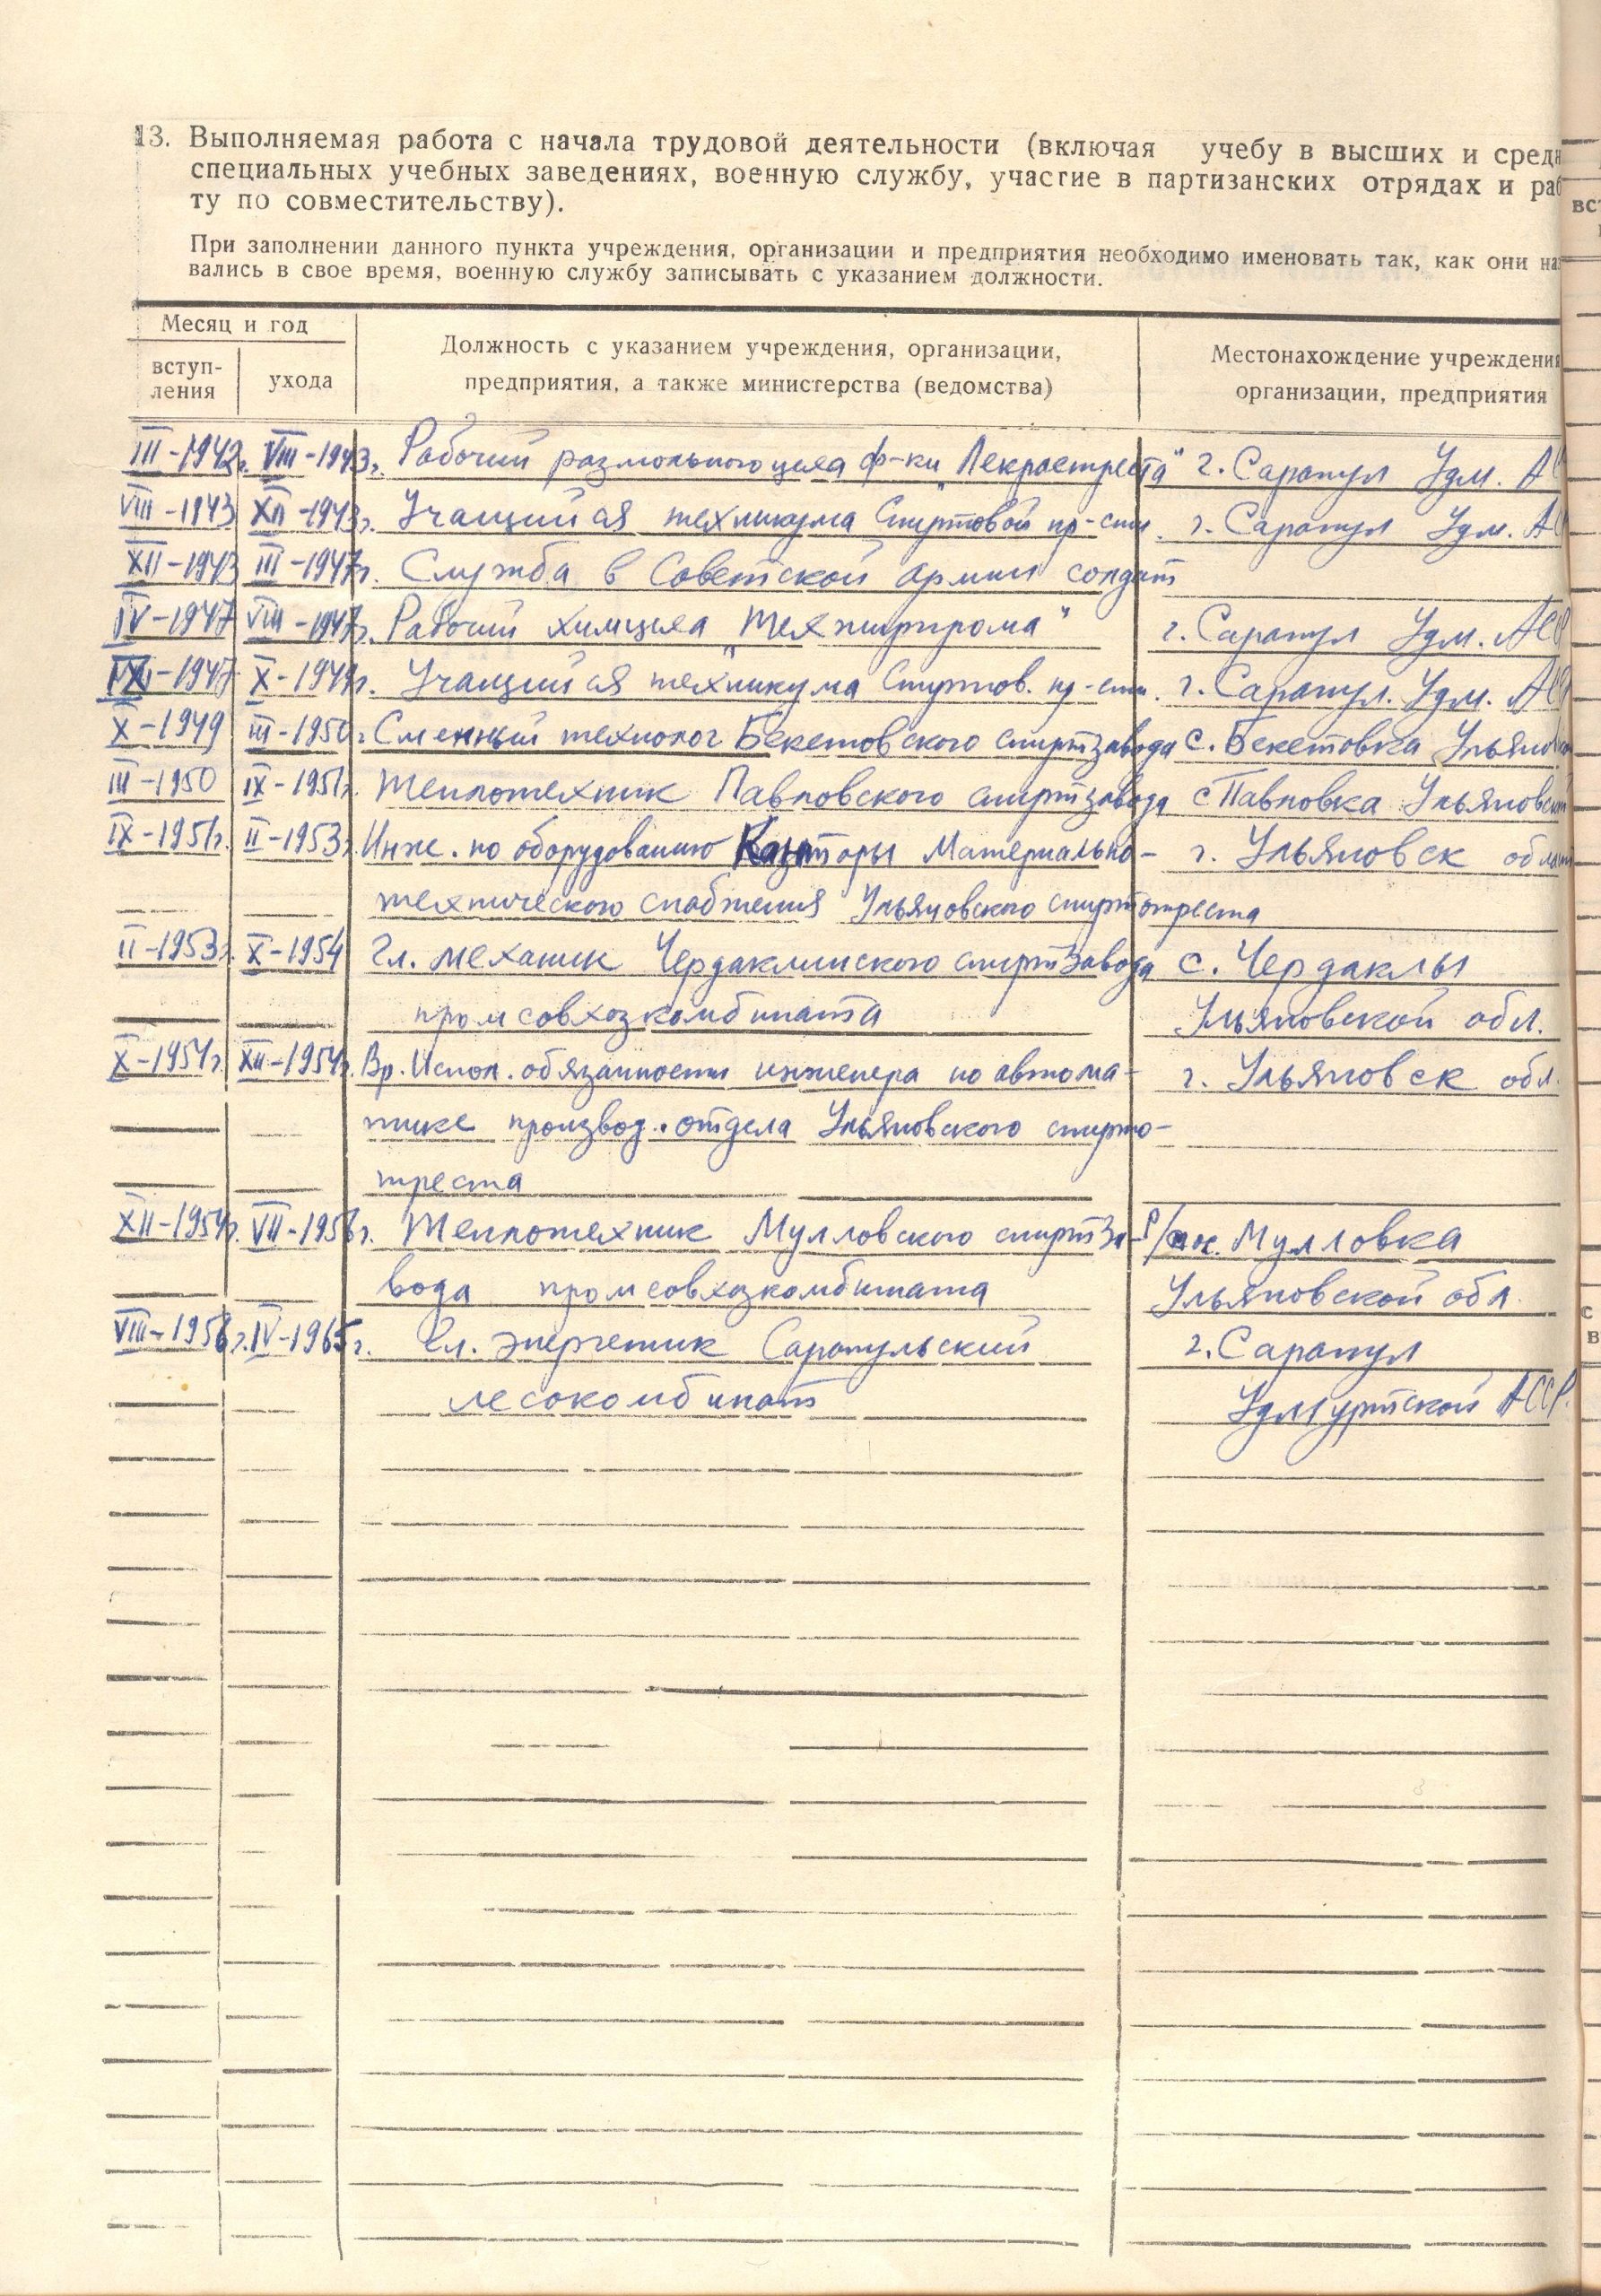 13. Выполняемая работа с начала трудовой деятельности (включая учебу в высших и средн
специальных учебных заведениях, военную службу, участие в партизанских отрядах и раб
ту по совместительству).
При заполнении данного пункта учреждения, организации и предприятия необходимо именовать так, как они наз
вались в свое время, военную службу записывать с указанием должности.
Месяц и год
вступ-
ления
ухода
Должность с указанием учреждения, организации,
предприятия, а также министерства (ведомства)
Местонахождение учреждения
организации, предприятия
III-1942г. VIII-1943г. Рабочий размольного цеха ф-ки "Лекрастреста" г. Сарапул Удм. АС
VIII-1943 XII-1943г. Учащийся техникума Спиртовой пр-сти. г. Сарапул Удм. АС
XII-1943 III-1947г. Служба в Советской армии солдат
IV-1947 VIII-1947г. Рабочий химцеха "Техжирпрома" г. Сарапул Удм. АСС
IX-1947 X-1949г. Учащийся техникума Спиртов. пр-сти. г. Сарапул. Удм. АСС
X-1949 III-1950г. Сменный технолог Бекетовского спиртзавода с. Бекетовка Ульянов
III-1950 IX-1951г. Теплотехник Павловского спиртзавода с Павловка Ульяновской
IX-1951г. II-1953г. Инж. по оборудованию Канторы Материально- г. Ульяновск област
технического снабжения Ульяновского спиртотреста
II-1953г. X-1954 Гл. механик Чердаклинского спиртзавода с. Чердаклы
промсовхозкомбината Ульяновской обл.
X-1954г. XII-1954г. Вр. Испол. обязанности инженера по автома- г. Ульяновск обл.
тике производ. отдела Ульяновского спирто-
треста
XII-1954г. VII-1956г. Теплотехник Мулловского спиртза- Р/пос. Мулловка
вода промсовхозкомбината Ульяновской обл.
VIII-1956г. IV-1965г. Гл. энергетик Сарапульский г. Сарапул
лесокомбинат Удмуртской АССР.
вст
с
в